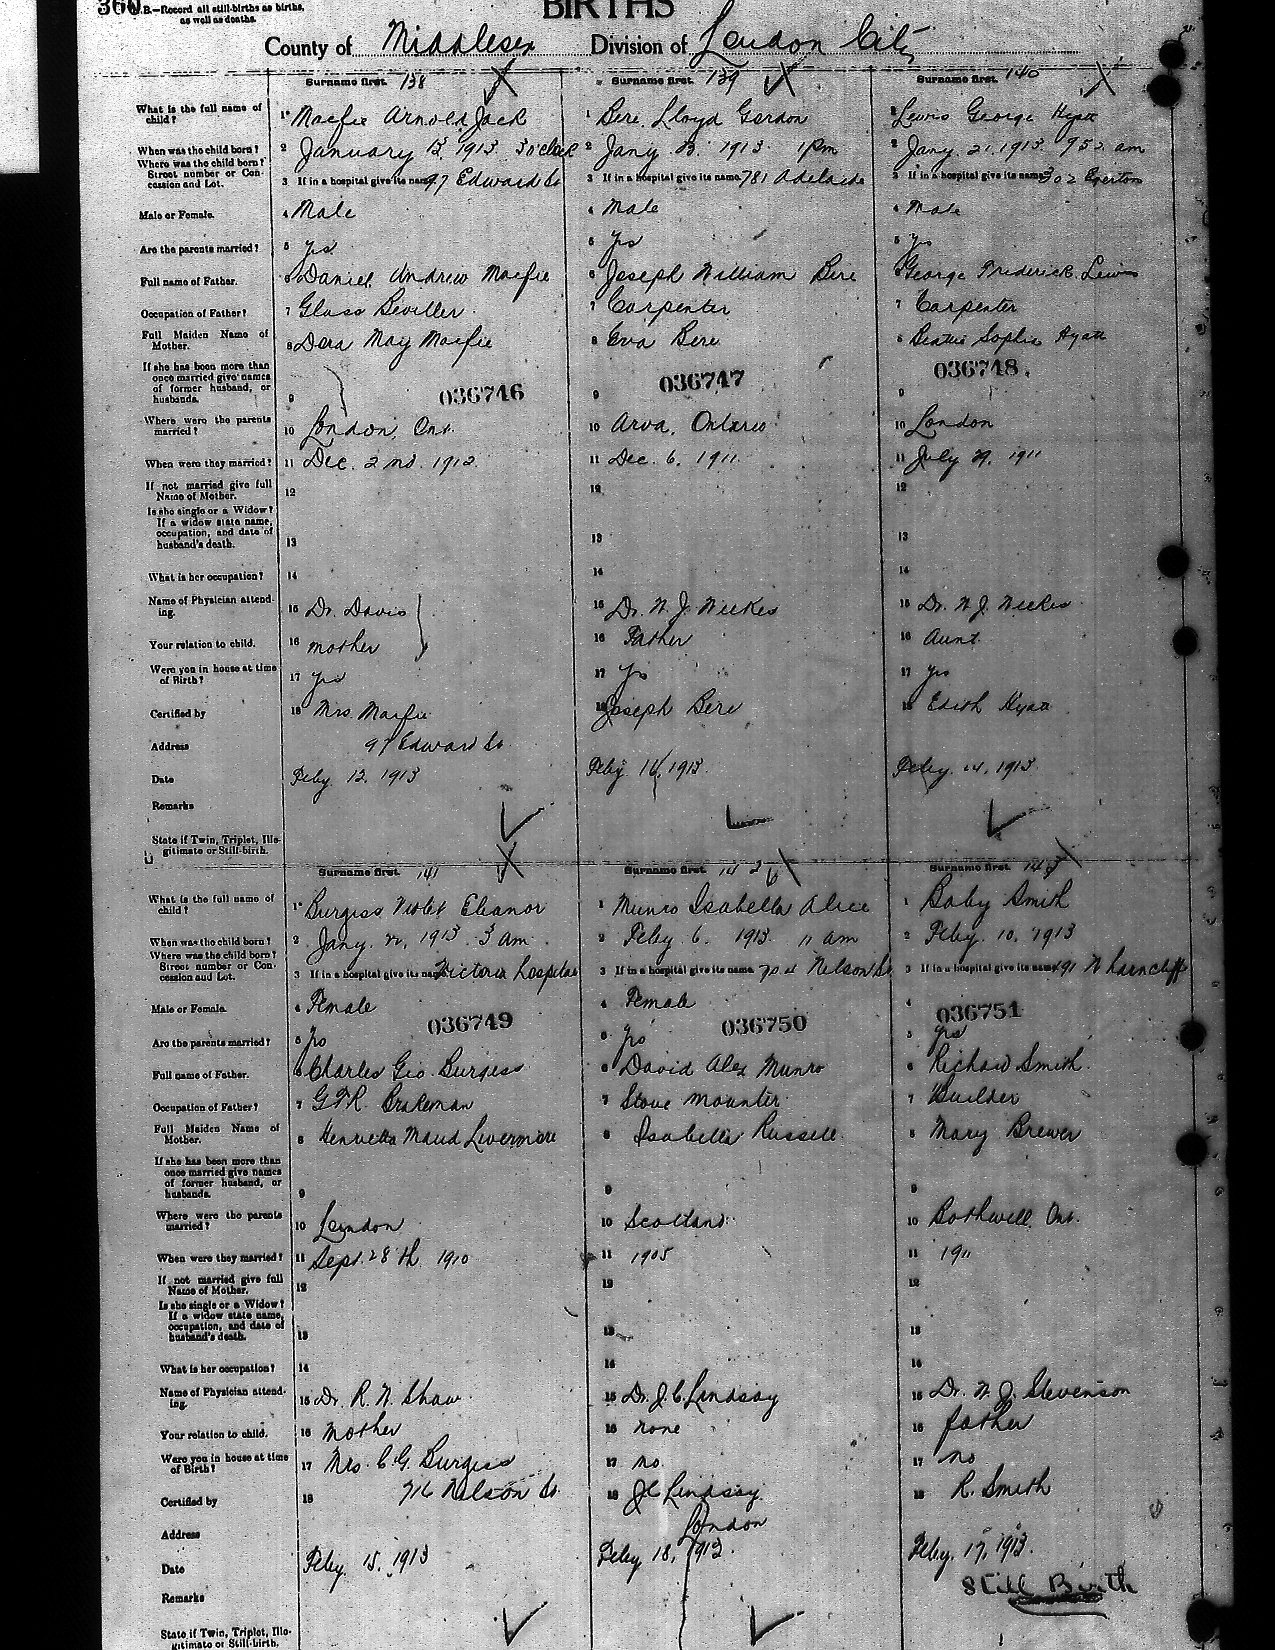 360
N.B.—Record all still-births as births,
as well as deaths.
BIRTHS
County of Middlesex Division of London City
Surname first. 138
Surname first. 139
Surname first. 140
What is the full name of child?
1 Macfie Arnold Jack
1 Bere, Lloyd Gordon
1 Lewis George Hyatt
When was the child born?
2 January 13, 1913 3 o'clock
2 Jany 1913 1 pm
2 Jany. 21. 1913. 9 52 am
Where was the child born? Street number or Concession and Lot.
3 If in a hospital give its name 97 Edward St
3 If in a hospital give its name. 781 Adelaide
3 If in a hospital give its name 302 Egerton
Male or Female.
4 Male
4 Male
4 Male
Are the parents married?
5 yes
5 yes
5 yes
Full name of Father.
6 Daniel Andrew Macfie
6 Joseph William Bere
6 George Frederick Lewis
Occupation of Father?
7 Glass Beviller
7 Carpenter
7 Carpenter
Full Maiden Name of Mother.
8 Dora May Macfie
8 Eva Bere
8 Sophia Hyatt
If she has been more than once married give names of former husband, or husbands.
9
9
9
036746
036747
036748
Where were the parents married?
10 London, Ont.
10 Arva, Ontario
10 London
When were they married?
11 Dec. 2nd. 1912
11 Dec. 6, 1911
11 July 29, 1911
If not married give full Name of Mother.
12
12
12
Is she single or a Widow? If a widow state name, occupation, and date of husband's death.
13
13
13
What is her occupation?
14
14
14
Name of Physician attending.
15 Dr. Davis
15 Dr. W. J. Weekes
15 Dr. W. J. Weekes
Your relation to child.
16 mother
16 Father
16 Aunt
Were you in house at time of Birth?
17 yes
17 yes
17 yes
Certified by
18 Mrs. Macfie
18 Joseph Bere
18 Edith Hyatt
Address
97 Edward St.
Date
Feby. 12. 1913
Feby 14, 1913.
Feby. 14, 1913
Remarks
State if Twin, Triplet, Illegitimate or Still-birth.
Surname first. 141
Surname first. 142
Surname first. 143
What is the full name of child?
1 Burgess Violet Eleanor
1 Munro Isabella Alice
1 Baby Smith
When was the child born?
2 Jany. 22, 1913 3 am.
2 Feby 6. 1913. 11 am
2 Feby. 10, 1913
Where was the child born? Street number or Concession and Lot.
3 If in a hospital give its name Victoria hospital
3 If in a hospital give its name 704 Nelson St
3 If in a hospital give its name 191 Wharncliffe
Male or Female.
4 Female
4 Female
4
036749
036750
036751
Are the parents married?
5 yes
5 yes
5 yes
Full name of Father.
6 Charles Geo. Burgess
6 David Alex Munro
6 Richard Smith.
Occupation of Father?
7 G.T.R. Brakeman
7 Stove mounter
7 Builder
Full Maiden Name of Mother.
8 Henrietta Maud Livermore
8 Isabella Russell
8 Mary Brewer
If she has been more than once married give names of former husband, or husbands.
9
9
9
Where were the parents married?
10 London
10 Scotland
10 Bothwell, Ont.
When were they married?
11 Sept. 28th. 1910
11 1905
11 1911
If not married give full Name of Mother.
12
12
12
Is she single or a Widow? If a widow state name, occupation, and date of husband's death.
13
13
13
What is her occupation?
14
14
14
Name of Physician attending.
15 Dr. R. W. Shaw
15 Dr. J. C. Lindsay
15 Dr. W. J. Stevenson
Your relation to child.
16 mother
16 none
16 father
Were you in house at time of Birth?
17 Mrs. C. G. Burgess
17 no
17 no
Certified by
18 716 Nelson St.
18 J C Lindsay
18 R. Smith
Address
London
Date
Feby. 15, 1913
Feby 18, 1913.
Feby. 17, 1913.
Remarks
Still Birth
State if Twin, Triplet, Illegitimate or Still-birth.